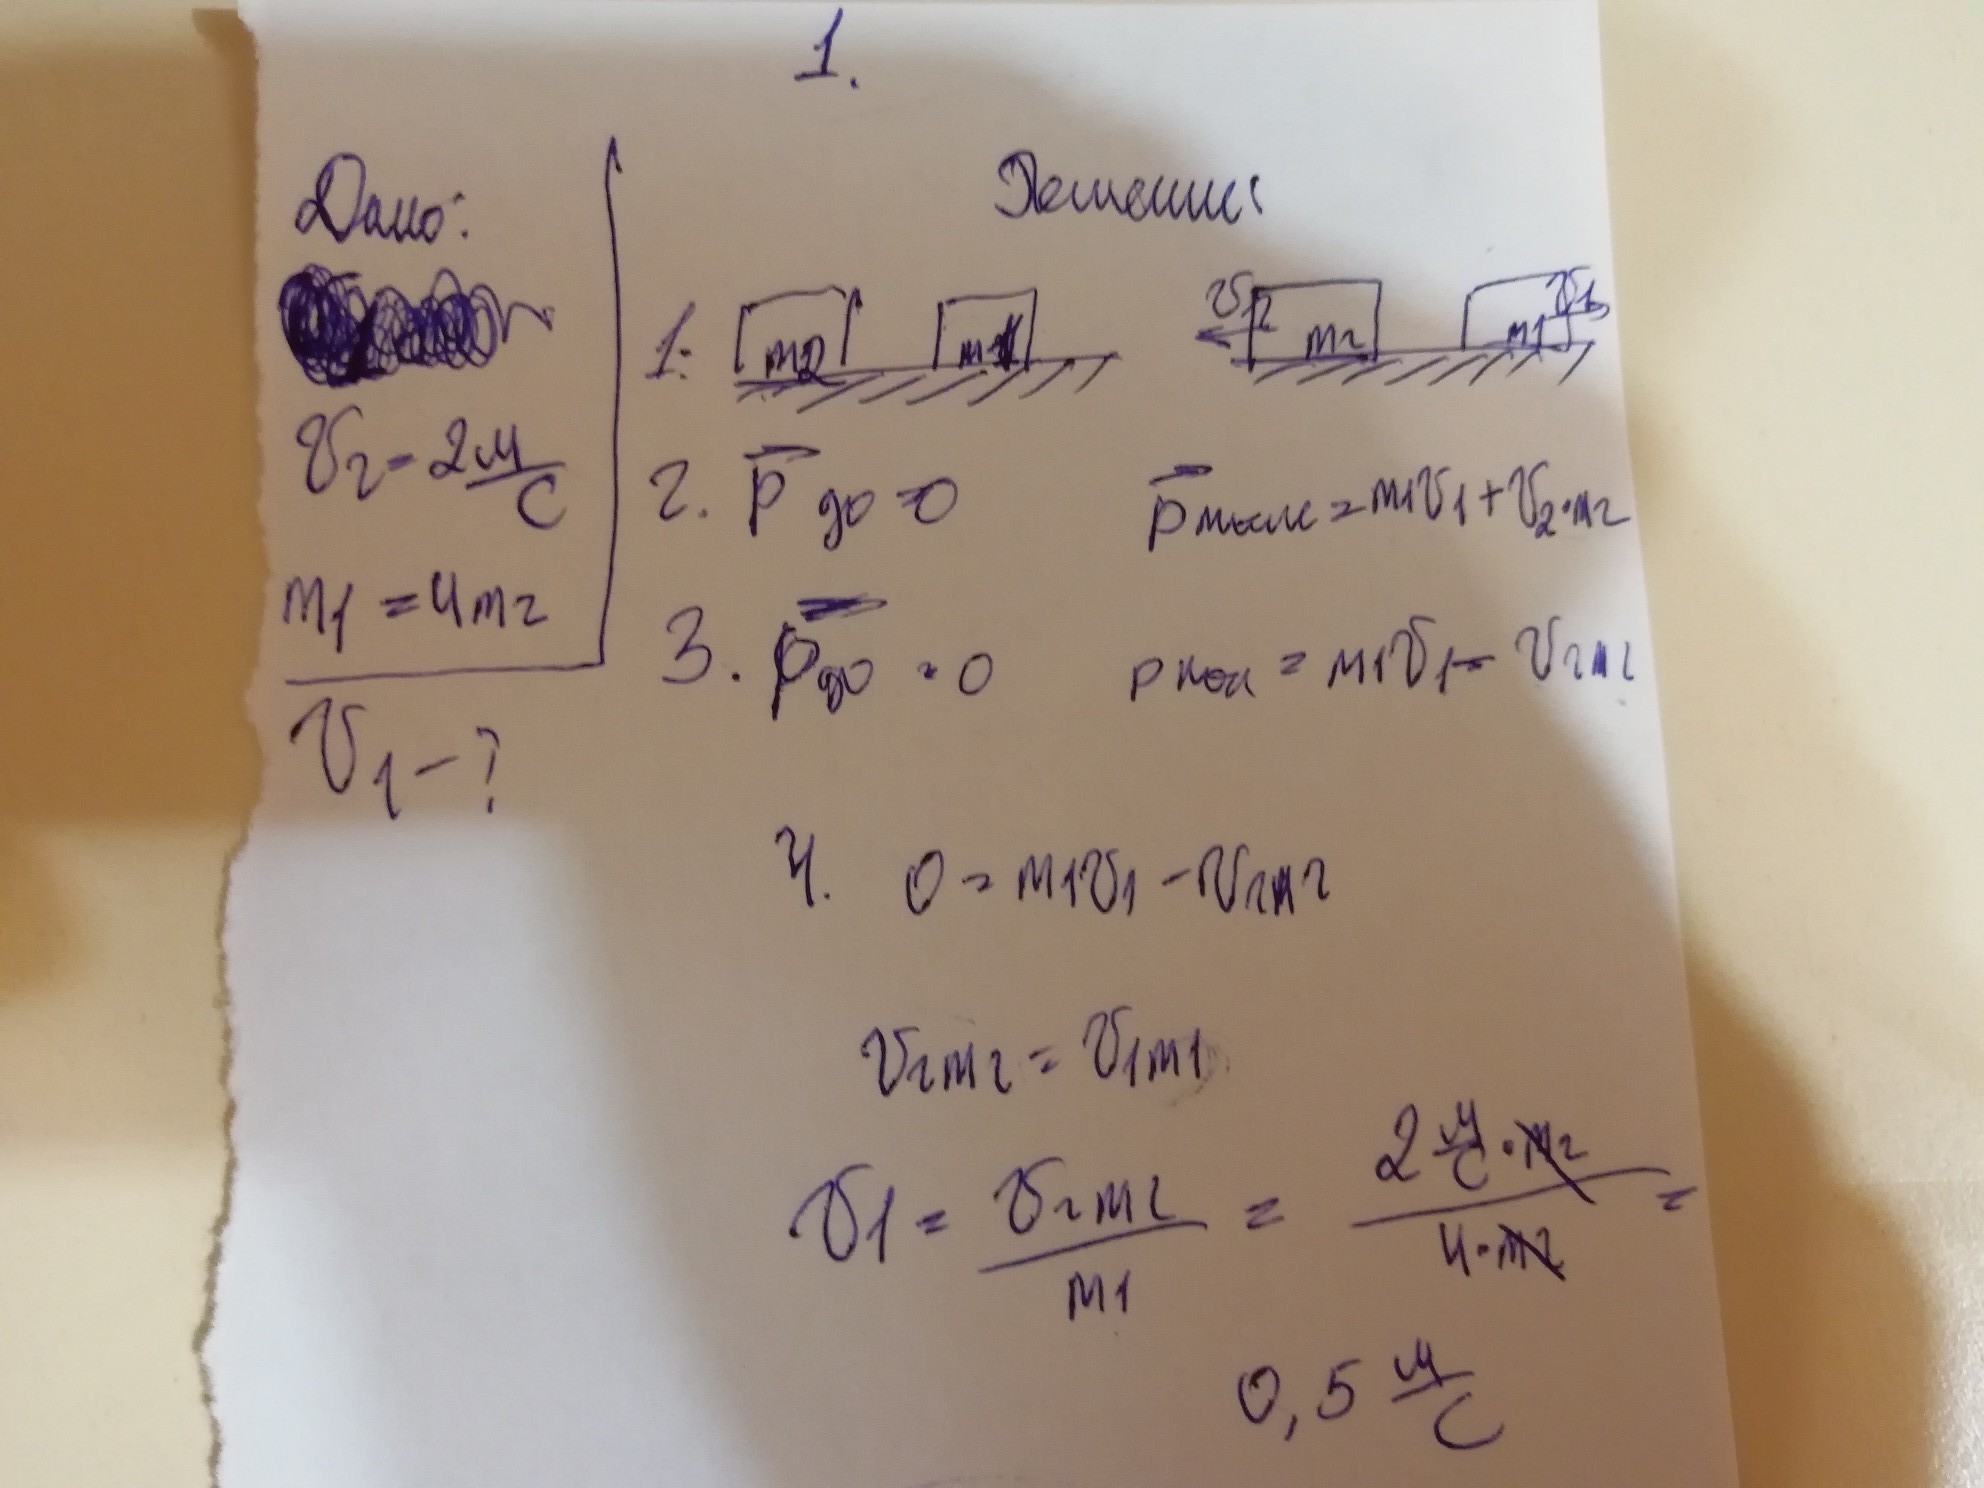 1.
Дано:
v2 = 2 м/с
m1 = 4m2
v1 - ?
Решение:
1. m2 m1 v2 m2 m1 v1
2. p до = 0 p = m1v1 + v2·m2
3. p до = 0 p = m1v1 - v2m2
4. 0 = m1v1 - v2m2
v2m2 = v1m1
v1 = v2m2 / m1 = 2 м/с · m2 / 4 · m2 =
0,5 м/с